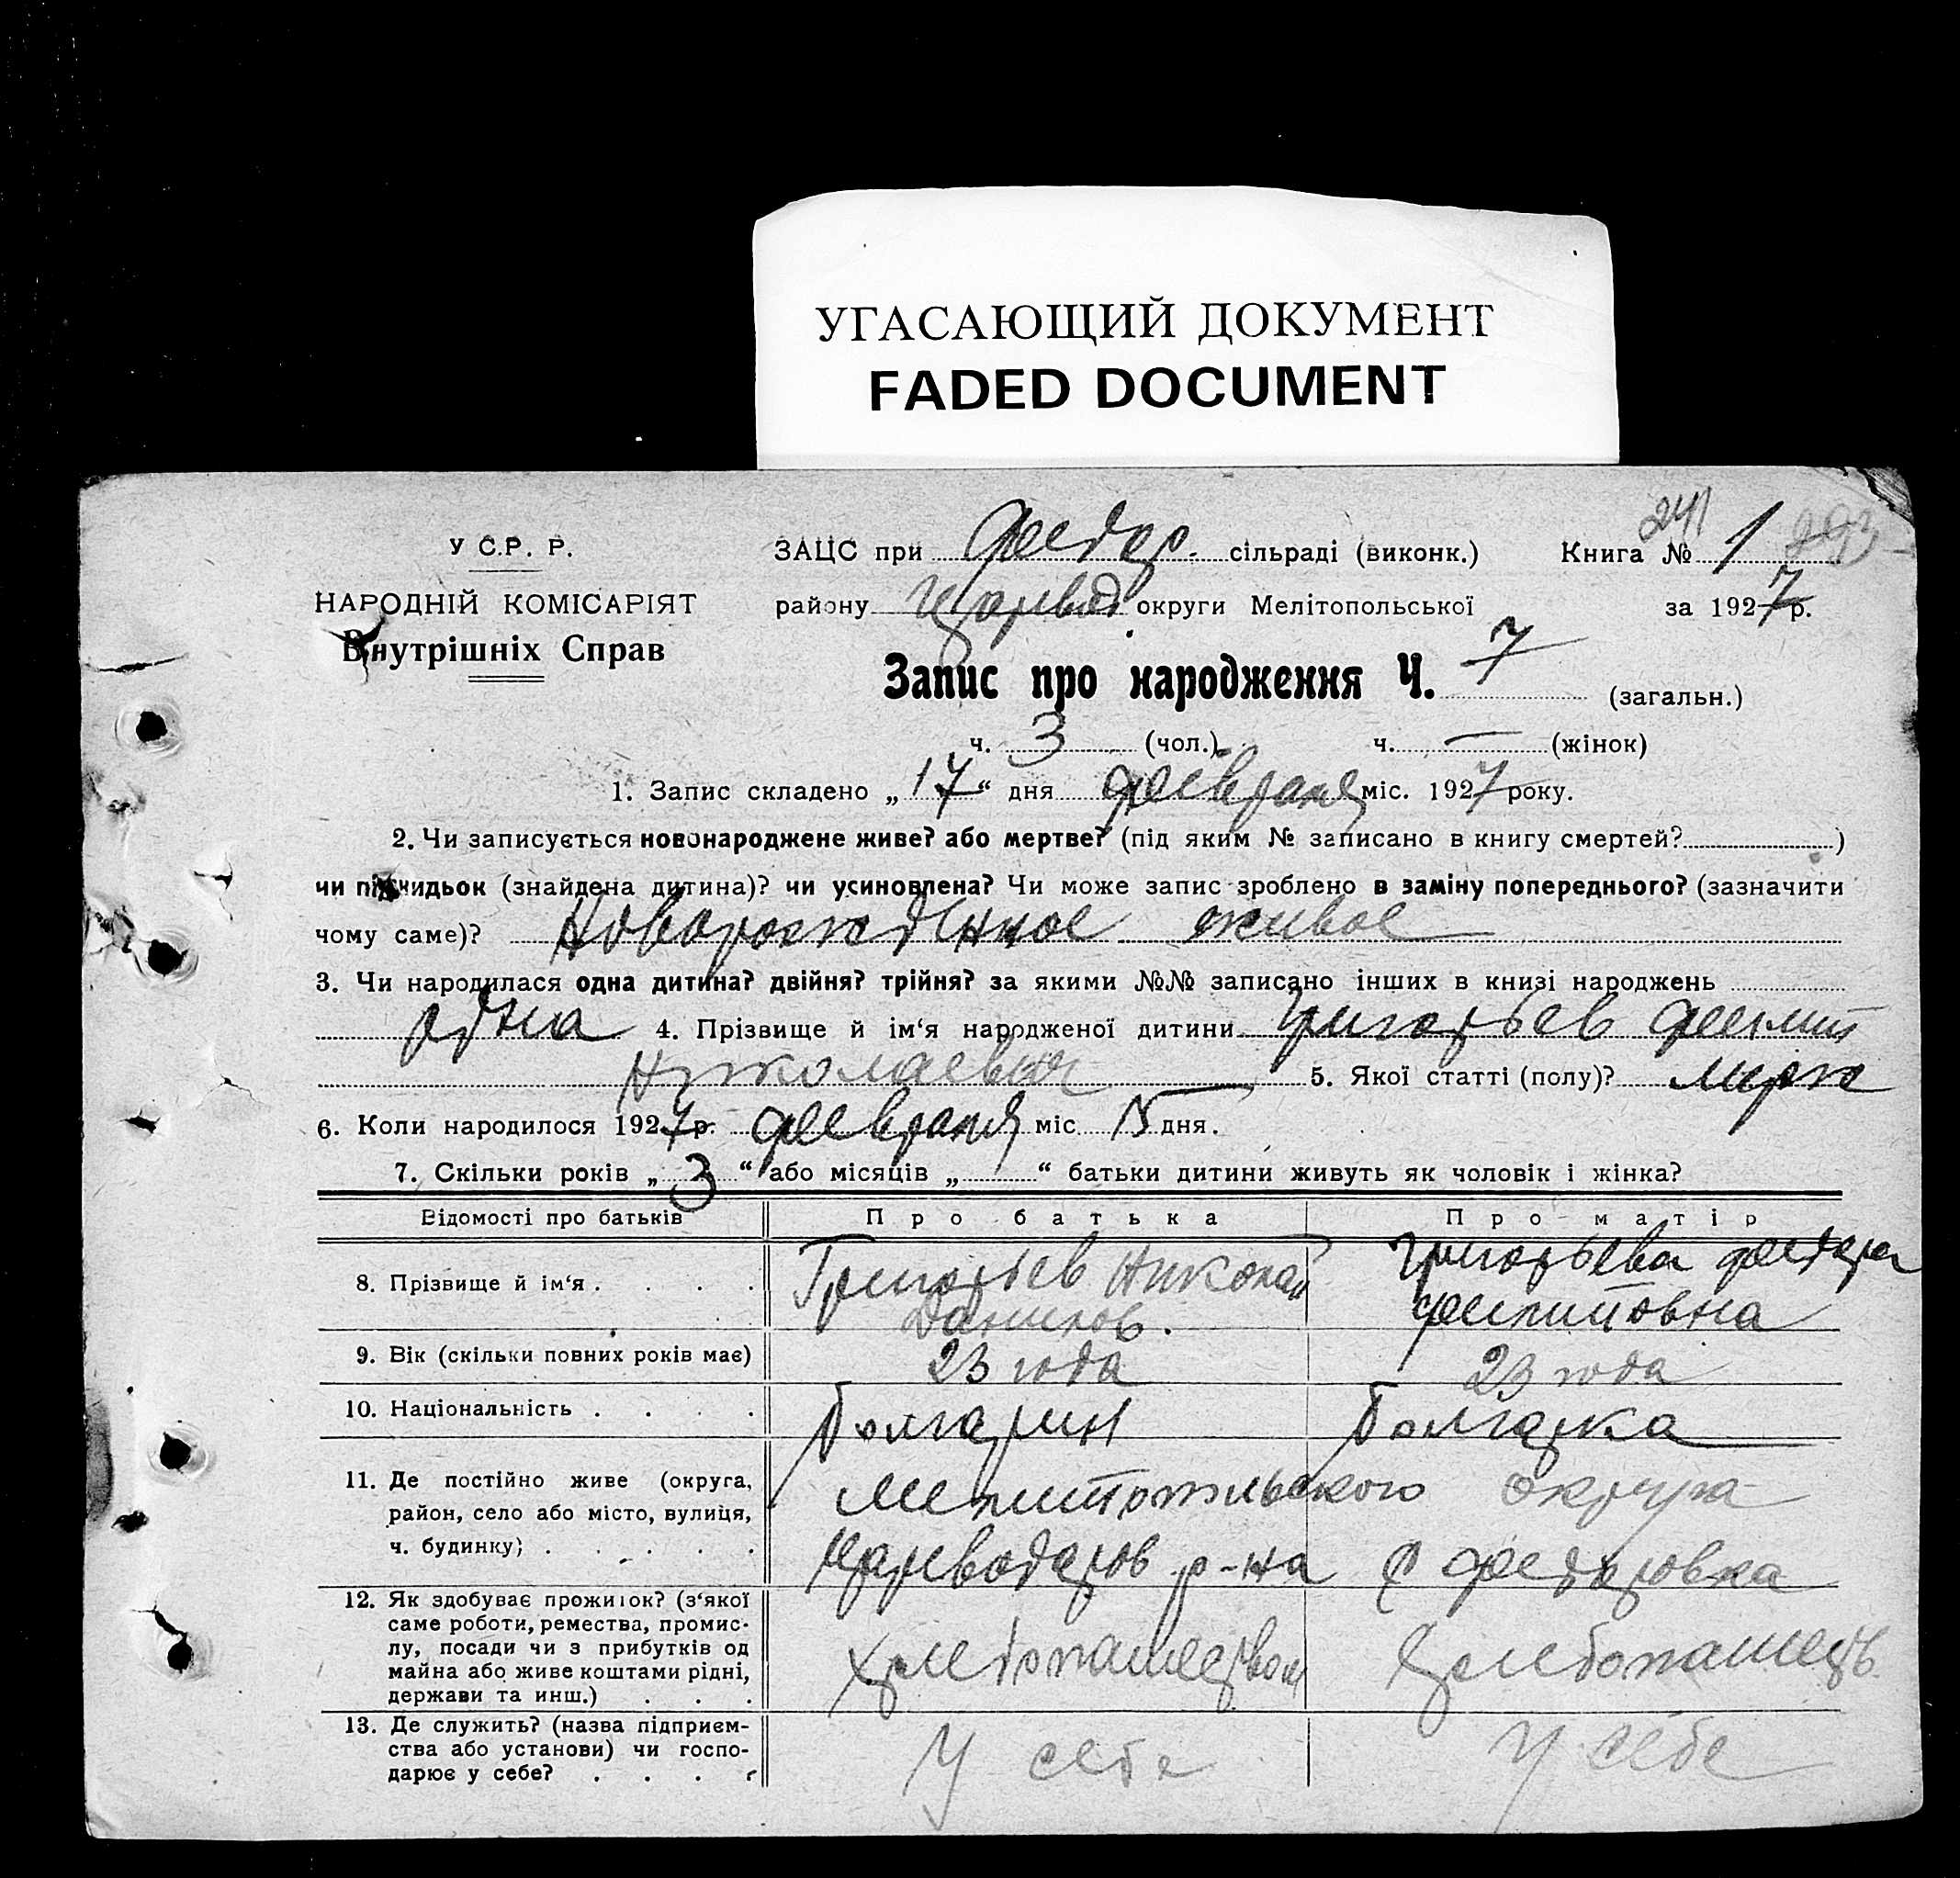 УГАСАЮЩИЙ ДОКУМЕНТ
FADED DOCUMENT
241
У С.Р. Р.
ЗАЦС при Федор. сільраді (виконк.) Книга № 1 293
НАРОДНІЙ КОМІСАРІЯТ
району Царевод. округи Мелітопольської за 1927 р.
Внутрішніх Справ
Запис про народження Ч. 7 (загальн.)
ч. 3 (чол.) ч. — (жінок)
1. Запис складено „17“ дня февраля міс. 1927 року.
2. Чи записується новонароджене живе? або мертве? (під яким № записано в книгу смертей? )
чи підкидьок (знайдена дитина)? чи усиновлена? Чи може запис зроблено в заміну попереднього? (зазначити
чому саме)? Новорожденное живое
3. Чи народилася одна дитина? двійня? трійня? за якими №№ записано інших в книзі народжень
одна 4. Прізвище й ім‘я народженої дитини Григорьев Филип
Николаевич 5. Якої статті (полу)? муж
6. Коли народилося 1927 р. февраля міс. 15 дня.
7. Скільки років „3“ або місяців „ “ батьки дитини живуть як чоловік і жінка?
Відомості про батьків Про батька Про матір
8. Прізвище й ім‘я . . . . Григорьев Николай Григорьева Федора
Данилов. Филиповна
9. Вік (скільки повних років має) 23 года 23 года
10. Національність . . . . Болгарин Болгарка
11. Де постійно живе (округа, Мелитопольского округа
район, село або місто, вулиця,
ч. будинку) . . . . . Цареводаров р-на с Федоровка
12. Як здобуває прожиток? (з‘якої
саме роботи, ремества, промис-
лу, посади чи з прибутків од
майна або живе коштами рідні, хлебопашеством хлебопашец
держави та инш.) . . .
13. Де служить? (назва підприєм-
ства або установи) чи госпо- У себе У себе
дарює у себе? . . . .